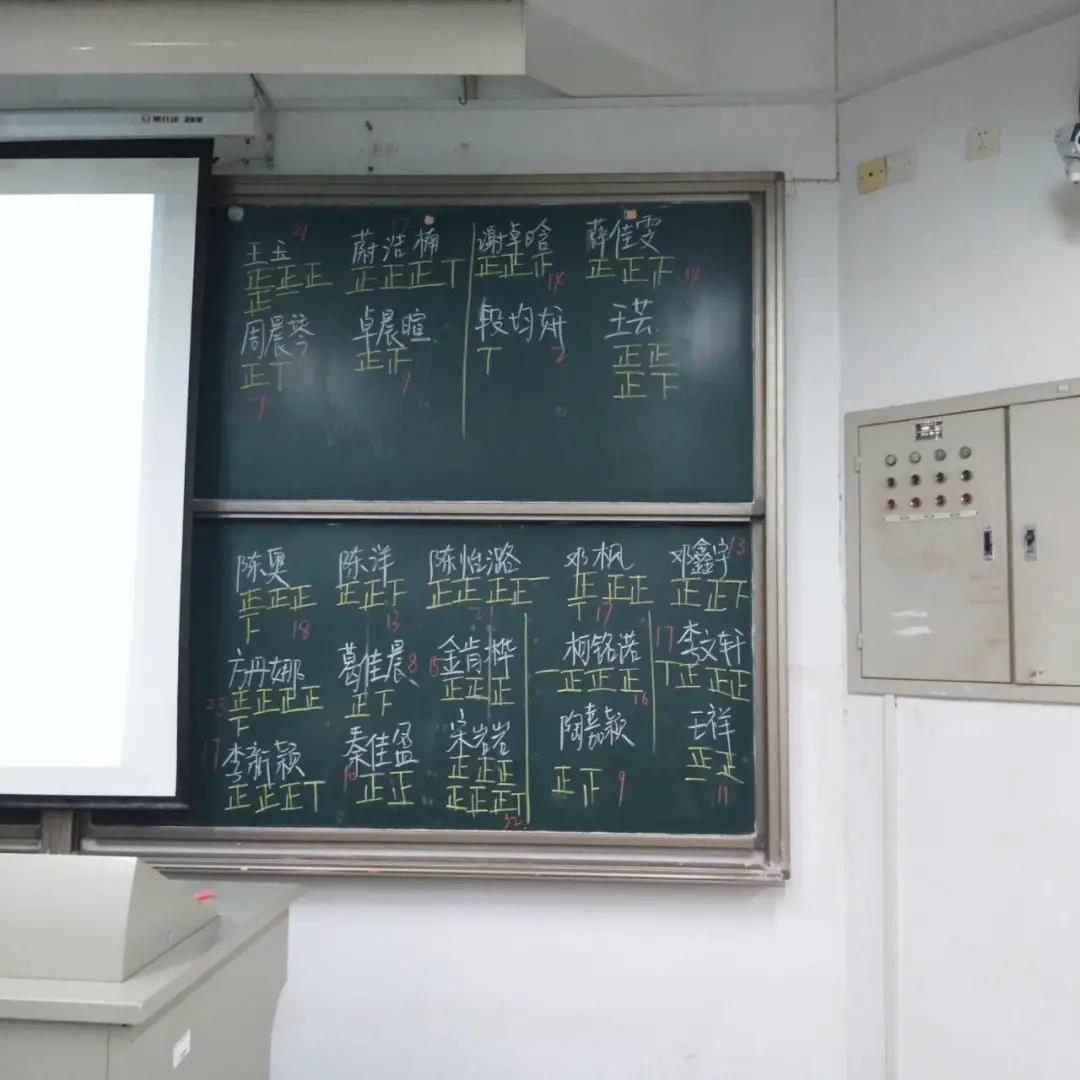 王玉 21 蔚洁楠 17 谢卓晗 薛佳雯
正正正 正正正丅 正正正 正正正
正 14 14
周晨 卓晨暄 段均妍 王芸
正丅 正正 丅 2 正正
7 9 正下
陈奥 陈洋 陈怡潞 邓枫 邓鑫宇 13
正正正 正正下 正正正正一 正正正 正正下
下 18 13 21 丅 17
方丹娜 葛佳晨 8 15 金肯桦 柯铭诺 17 李文轩
23 正正正正 正下 正正正 一正正正 丅正正正
下 16
17 李新颖 秦佳盈 宋岩岩 陶嘉颖 王祥
正正正丅 10 正正 正正正 正正 9 正正
正正正丅 一
32 11